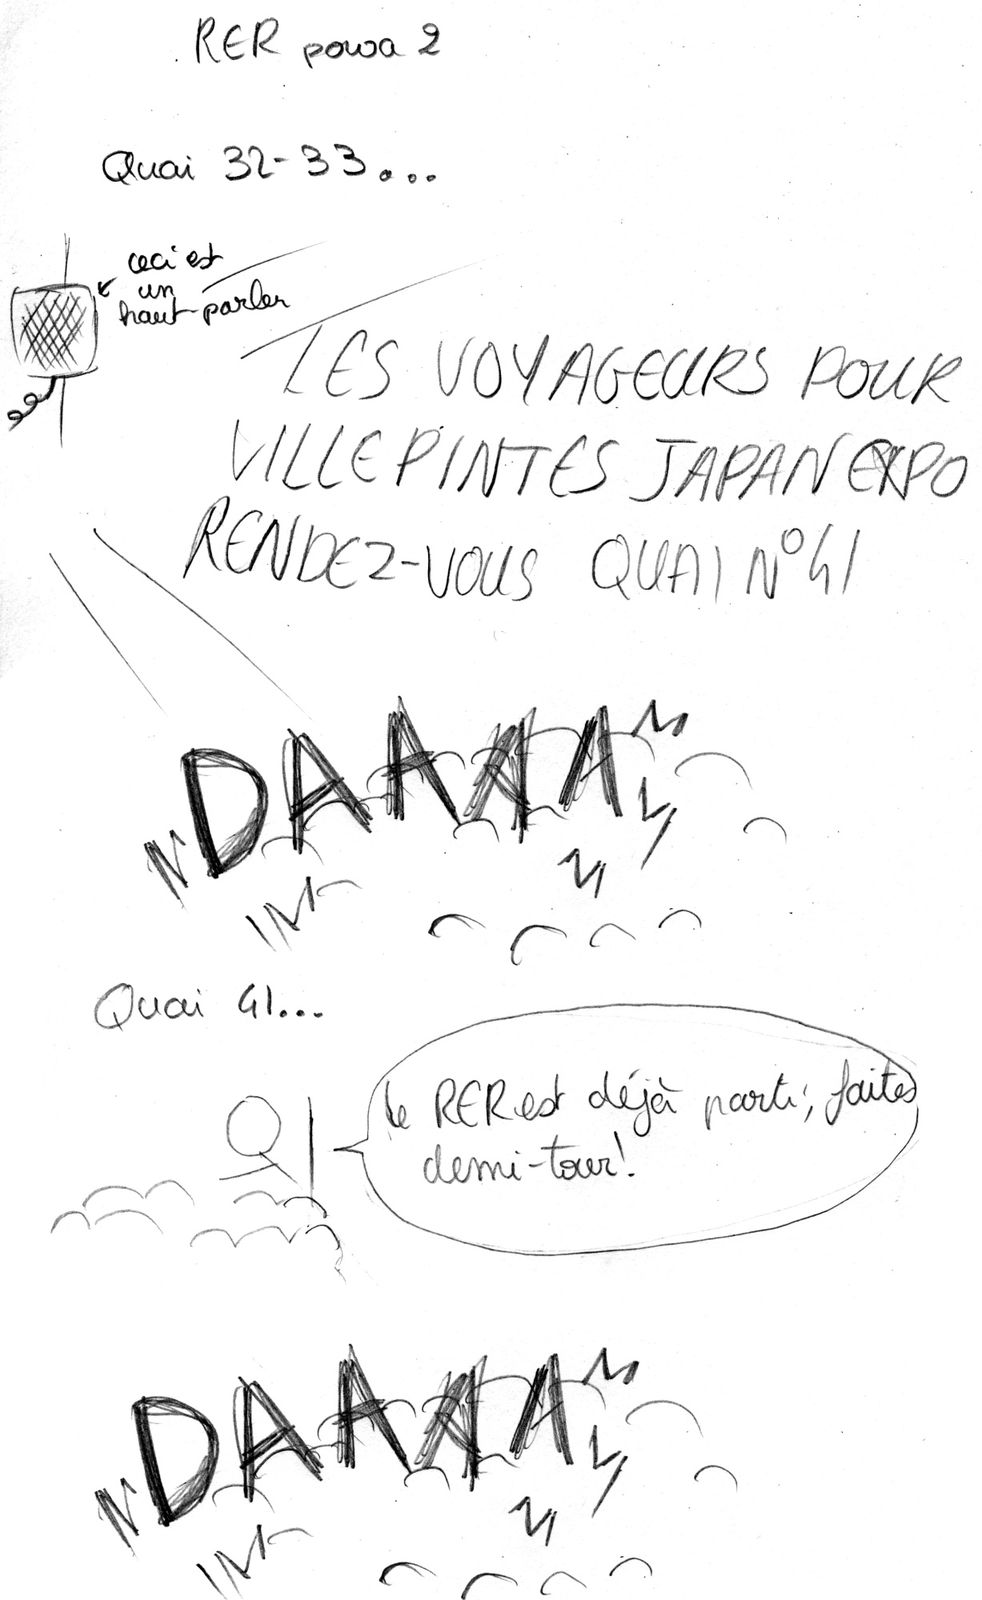 RER powa 2
Quai 32-33...
ceci est
un
haut-parler
LES VOYAGEURS POUR
VILLEPINTES JAPAN EXPO
RENDEZ-VOUS QUAI N°41
DAAAA
Quai 41...
le RER est déjà parti, faites
demi-tour!
DAAAA